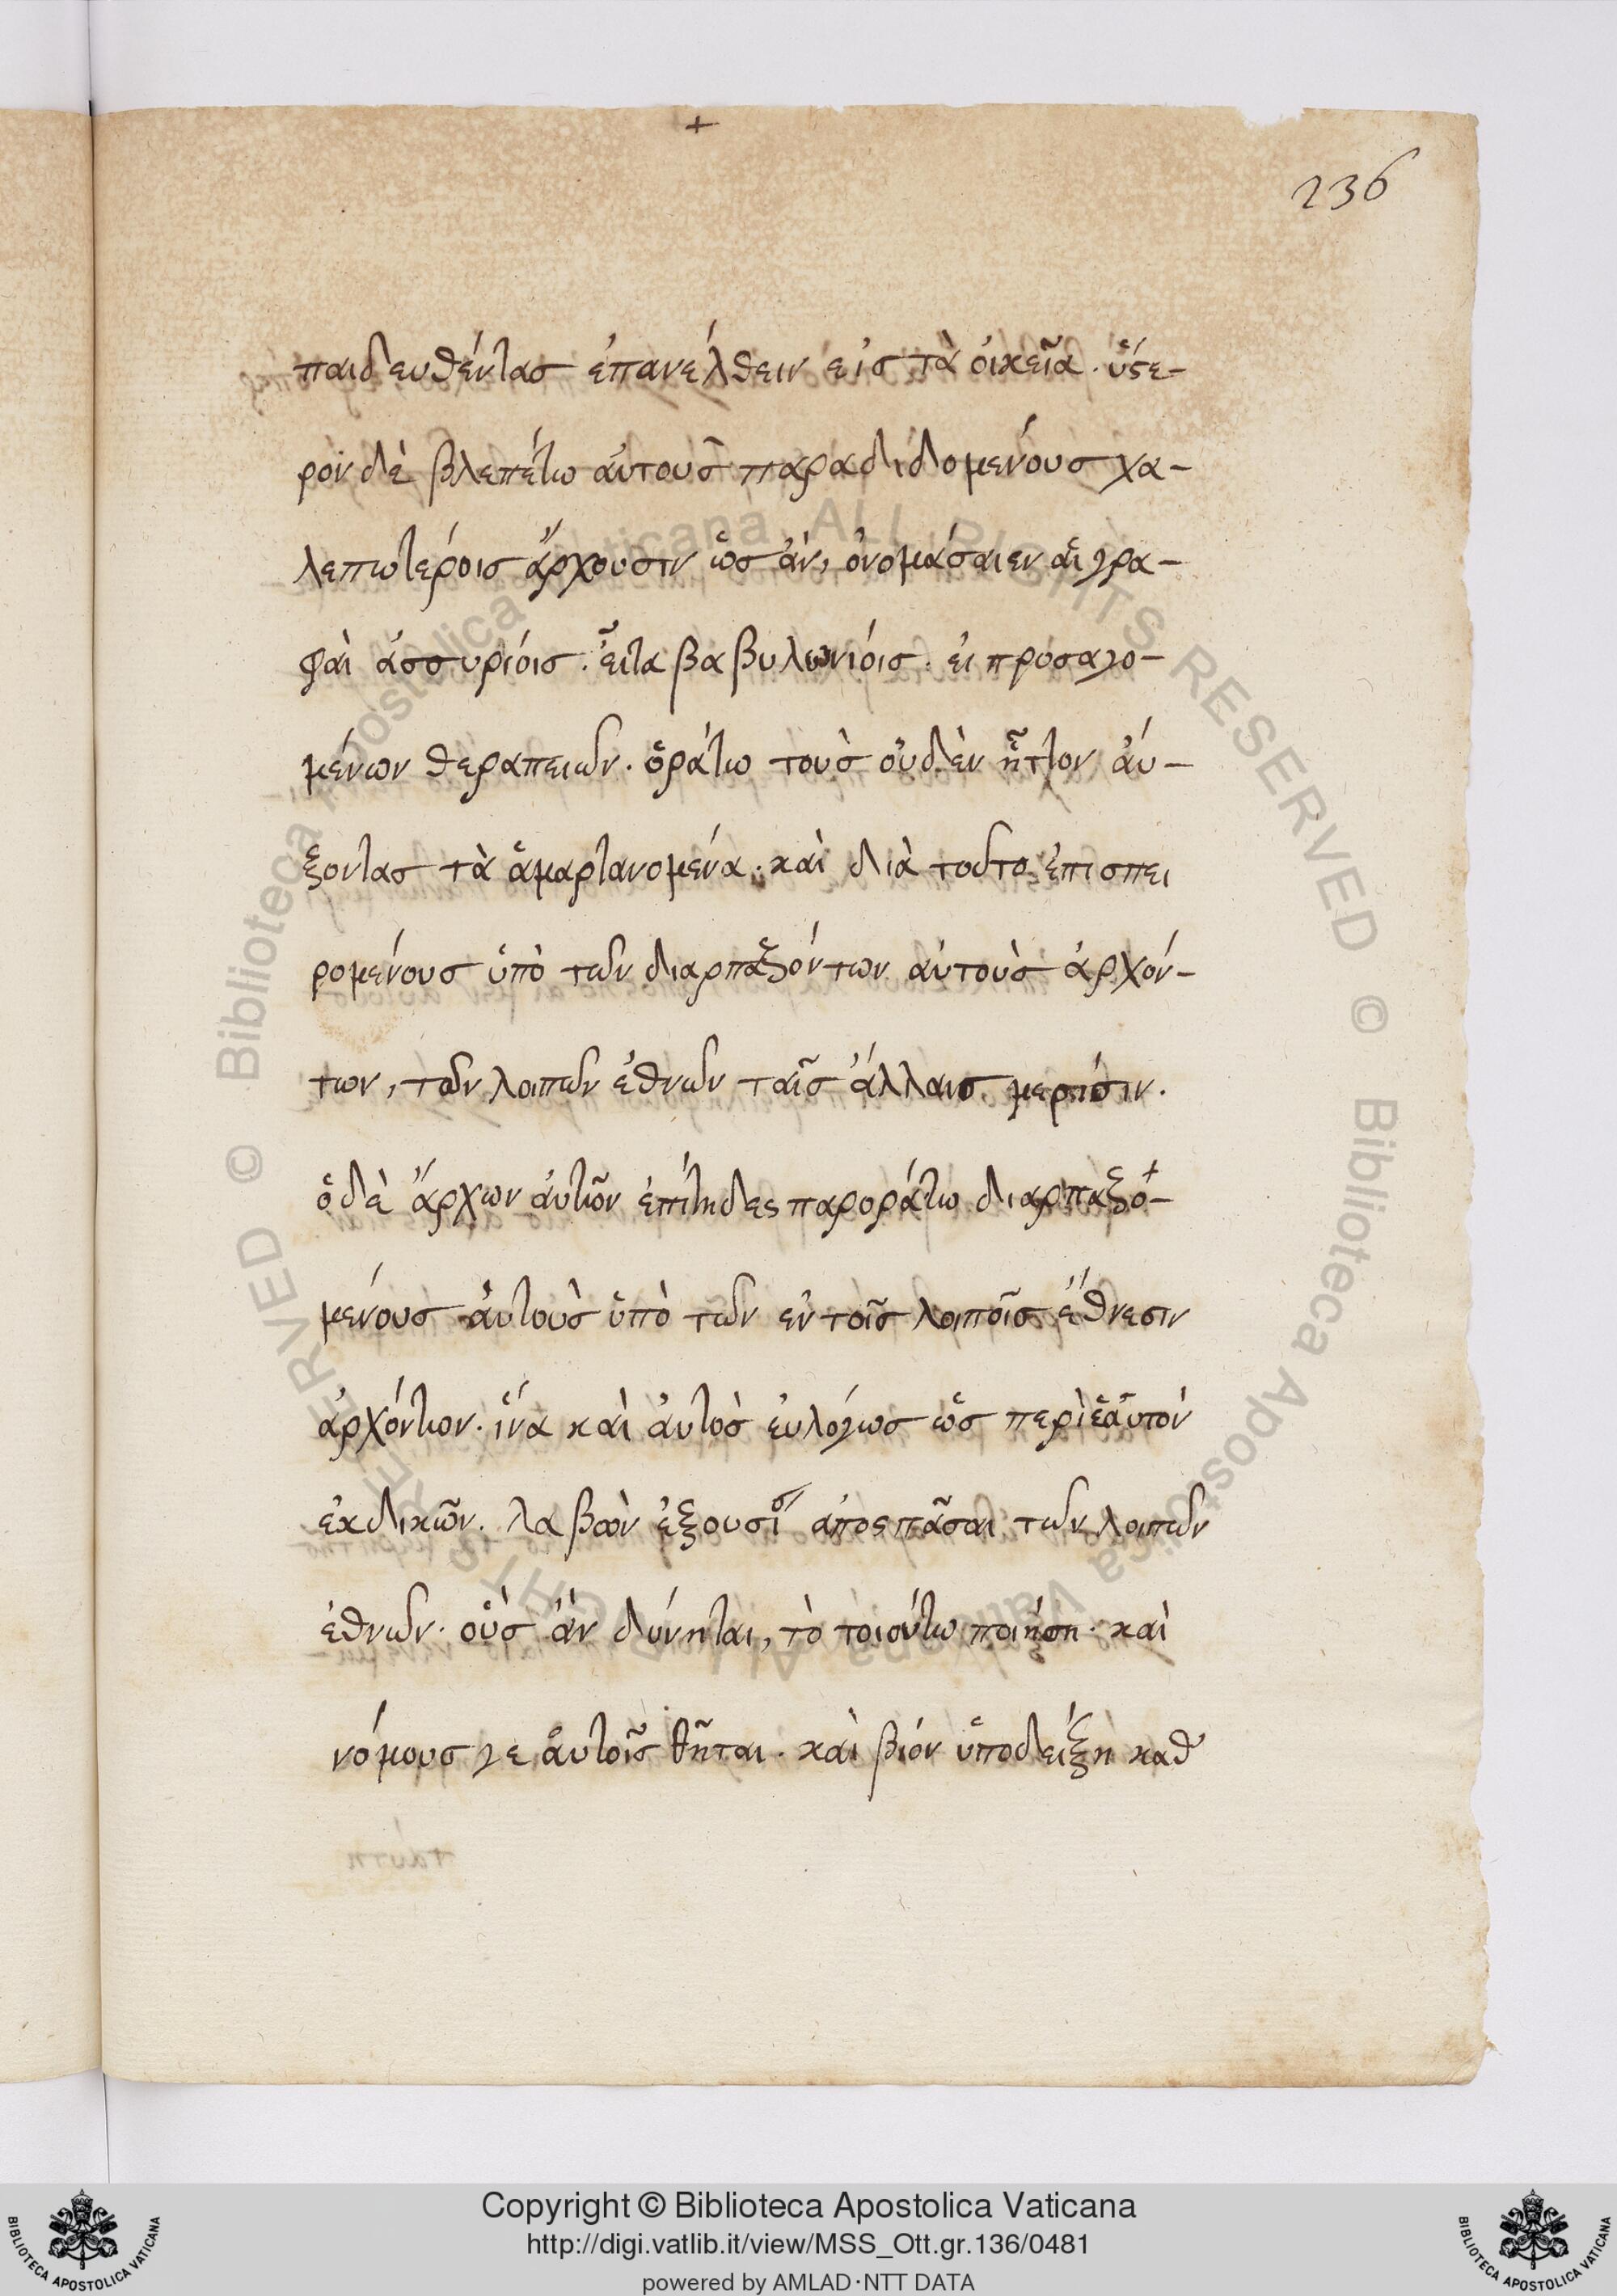 +
236
παιδευθένtας ἐπανέλθειν εἰς τὰ ὀικεῖα. ὕστε-
ρον δὲ βλεπέτω ἀυτοὺς παραδιδομένους χα-
λεπωτέροις ἄρχουσιν ὡς ἀν, ὀνομάσαιεν ἁι γρα-
φαὶ ἀσσυρίοις. ἖ιτα βαβυλωνίοις. ἐι προσαγο-
μένων θεραπειῶν. ὁράτω τοὺς οὐδὲν ἧττον ἀύ-
ξοντας τὰ ἁμαρτανομένα. καὶ διὰ τοῦτο ἐπισπει
ρομένους ὑπὸ τῶν διαρπαξόντων ἀυτοὺς ἀρχόν-
των, τῶν λοιπῶν ἐθνῶν ταῖς ἄλλαις μερίσιν.
ὁ δὲ ἄρχων ἀυτῶν ἐπίτηδες παροράτω διαρπαξο+-
μένους ἀυτοὺς ὑπὸ τῶν ἐν τοῖς λοιποῖς ἔθνεσιν
ἀρχόντων. ἵνα καὶ ἀυτὸς ἐυλόγως ὡς περὶ ἑἀυτὸν
ἐκδικῶν. λαβὼν ἐξουσί ἀποσπᾶσαι τῶν λοιπῶν
ἐθνῶν. οὓς ἀν δύνηται, τὸ τοιούτω ποιήση. καὶ
νόμους γε ἀυτοῖς θῆται. καὶ βίον ὑποδείξη καθ'
Copyright © Biblioteca Apostolica Vaticana
http://digi.vatlib.it/view/MSS_Ott.gr.136/0481
powered by AMLAD·NTT DATA
BIBLIOTECA APOSTOLICA VATICANA
BIBLIOTECA APOSTOLICA VATICANA
© Biblioteca Apostolica Vaticana ALL RIGHTS RESERVED © Biblioteca Apostolica Vaticana ALL RIGHTS RESERVED